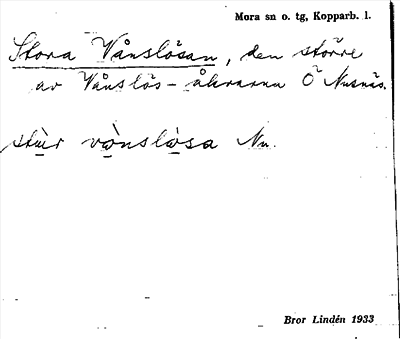 Mora sn o. tg, Kopparb. l.
Stora Vånslösan, den större
av Vånslös-åkrarna Ö Nusnäs.
stùr vǫ̀nslò̱sa Nu.
Bror Lindén 1933